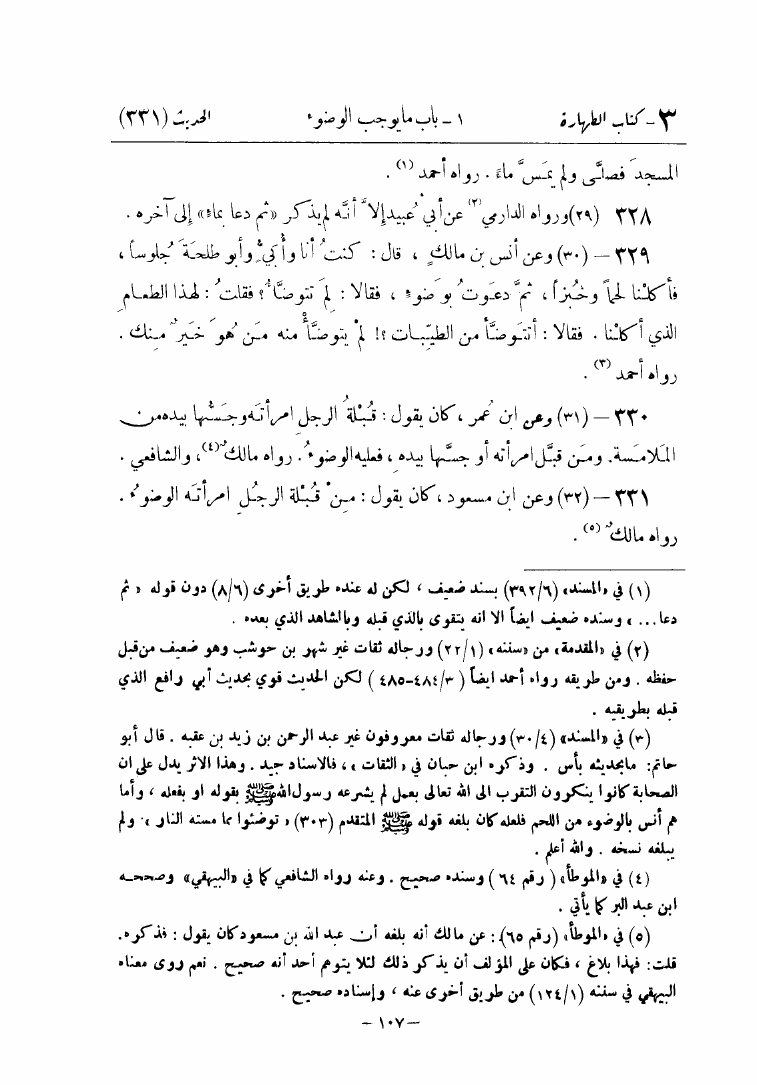 ٣ - كتاب الطهارة ١ - باب ما يوجب الوضوء الحديث (٣٣١)
المسجدَ فصلَّى ولم يمسَّ ماءً. رواه أحمد (١) .
٣٢٨ (٢٩) ورواه الدارمي (٢) عن أبي عُبيد إلا أنَّه لم يذكر «ثم دعا بماءٍ» إلى آخره .
٣٢٩ - (٣٠) وعن أنس بن مالكٍ ، قال : كنتُ أنا وأُبَيٌّ وأبو طلحةَ جُلوساً ،
فأكلْنا لحماً وخُبزاً ، ثمَّ دعوتُ بوَضوءٍ ، فقالا : لِمَ تتوضَّأُ ؟ فقلتُ : لهذا الطعام
الذي أكلْنا . فقالا : أتتوضَّأ من الطيِّبات ؟! لمْ يتوضَّأْ منه مَن هُوَ خَيرٌ مِنك .
رواه أحمد (٣) .
٣٣٠ - (٣١) وعن ابن عُمر ، كان يقول : قُبْلةُ الرجل امرأتَه وجَسُّها بيده من
المُلامَسة. ومَن قبَّل امرأته أو جسَّها بيده ، فعليه الوضوءُ. رواه مالكٌ (٤) ، والشافعي .
٣٣١ - (٣٢) وعن ابن مسعود ، كان يقول : مِنْ قُبْلة الرجُلِ امرأتَه الوضوءُ .
رواه مالكٌ (٥) .
(١) في «المسند» (٣٩٢/٦) بسند ضعيف ، لكن له عنده طريق أخرى (٨/٦) دون قوله « ثم
دعا... » وسنده ضعيف ايضاً الا انه يتقوى بالذي قبله وبالشاهد الذي بعده .
(٢) في «المقدمة» من «سننه» (٢٢/١) ورجاله ثقات غير شهر بن حوشب وهو ضعيف من قبل
حفظه . ومن طريقه رواه أحمد ايضاً ( ٤٨٤/٣-٤٨٥ ) لكن الحديث قوي بحديث أبي رافع الذي
قبله بطريقيه .
(٣) في «المسند» (٣٠/٤) ورجاله ثقات معروفون غير عبد الرحمن بن زيد بن عقبه . قال أبو
حاتم: مابحديثه بأس . وذكره ابن حبان في « الثقات » ، فالاسناد جيد . وهذا الاثر يدل على ان
الصحابة كانوا ينكرون التقرب الى الله تعالى بعمل لم يشرعه رسول الله ﷺ بقوله او بفعله ، وأما
هم أنس بالوضوء من اللحم فلعله كان بلغه قوله ﷺ المتقدم (٣٠٣) « توضئوا مما مسته النار » ولم
يبلغه نسخه . والله أعلم .
(٤) في «الموطأ» ( رقم ٦٤ ) وسنده صحيح . وعنه رواه الشافعي كما في «البيهقي» وصححه
ابن عبد البر كما يأتي .
(٥) في «الموطأ» (رقم ٦٥) : عن مالك أنه بلغه أن عبد الله بن مسعود كان يقول : فذكره.
قلت: فهذا بلاغ ، فكان على المؤلف أن يذكر ذلك لئلا يتوهم أحد أنه صحيح . نعم روى معناه
البيهقي في سننه (١٢٤/١) من طريق أخرى عنه ، وإسناده صحيح .
- ١٠٧ -